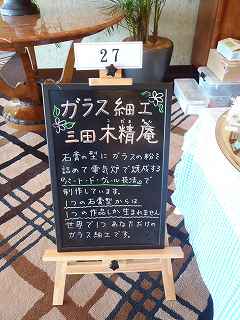 27
ガラス細工
三田 木精庵
石膏の型にガラスの粉を
詰めて電気炉で焼成する
『パート・ド・ヴェール技法』で
制作しています。
1つの石膏型からは
1つの作品しか生まれません
世界で1つあなただけの
ガラス細工です。